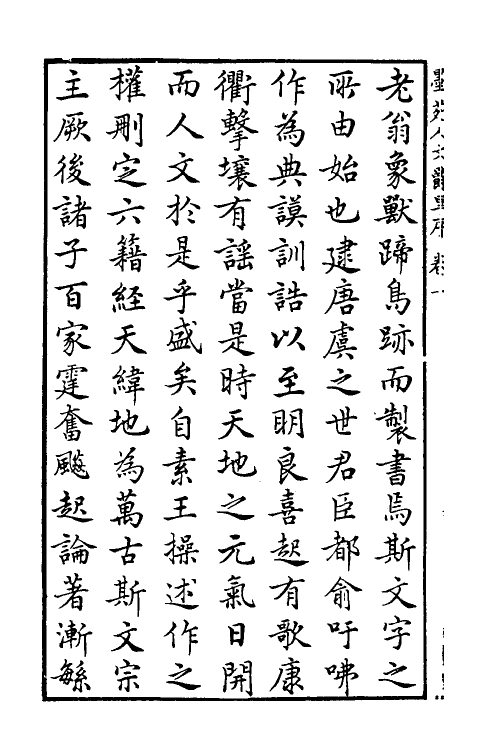 老翁象獸蹄鳥跡而製書焉斯文字之
所由始也逮唐虞之世君臣都俞吁咈
作為典謨訓誥以至明良喜起有歌康
衢擊壤有謠當是時天地之元氣日開
而人文於是乎盛矣自素王操述作之
權刪定六籍經天緯地為萬古斯文宗
主厥後諸子百家霆奮飈起論著漸繇